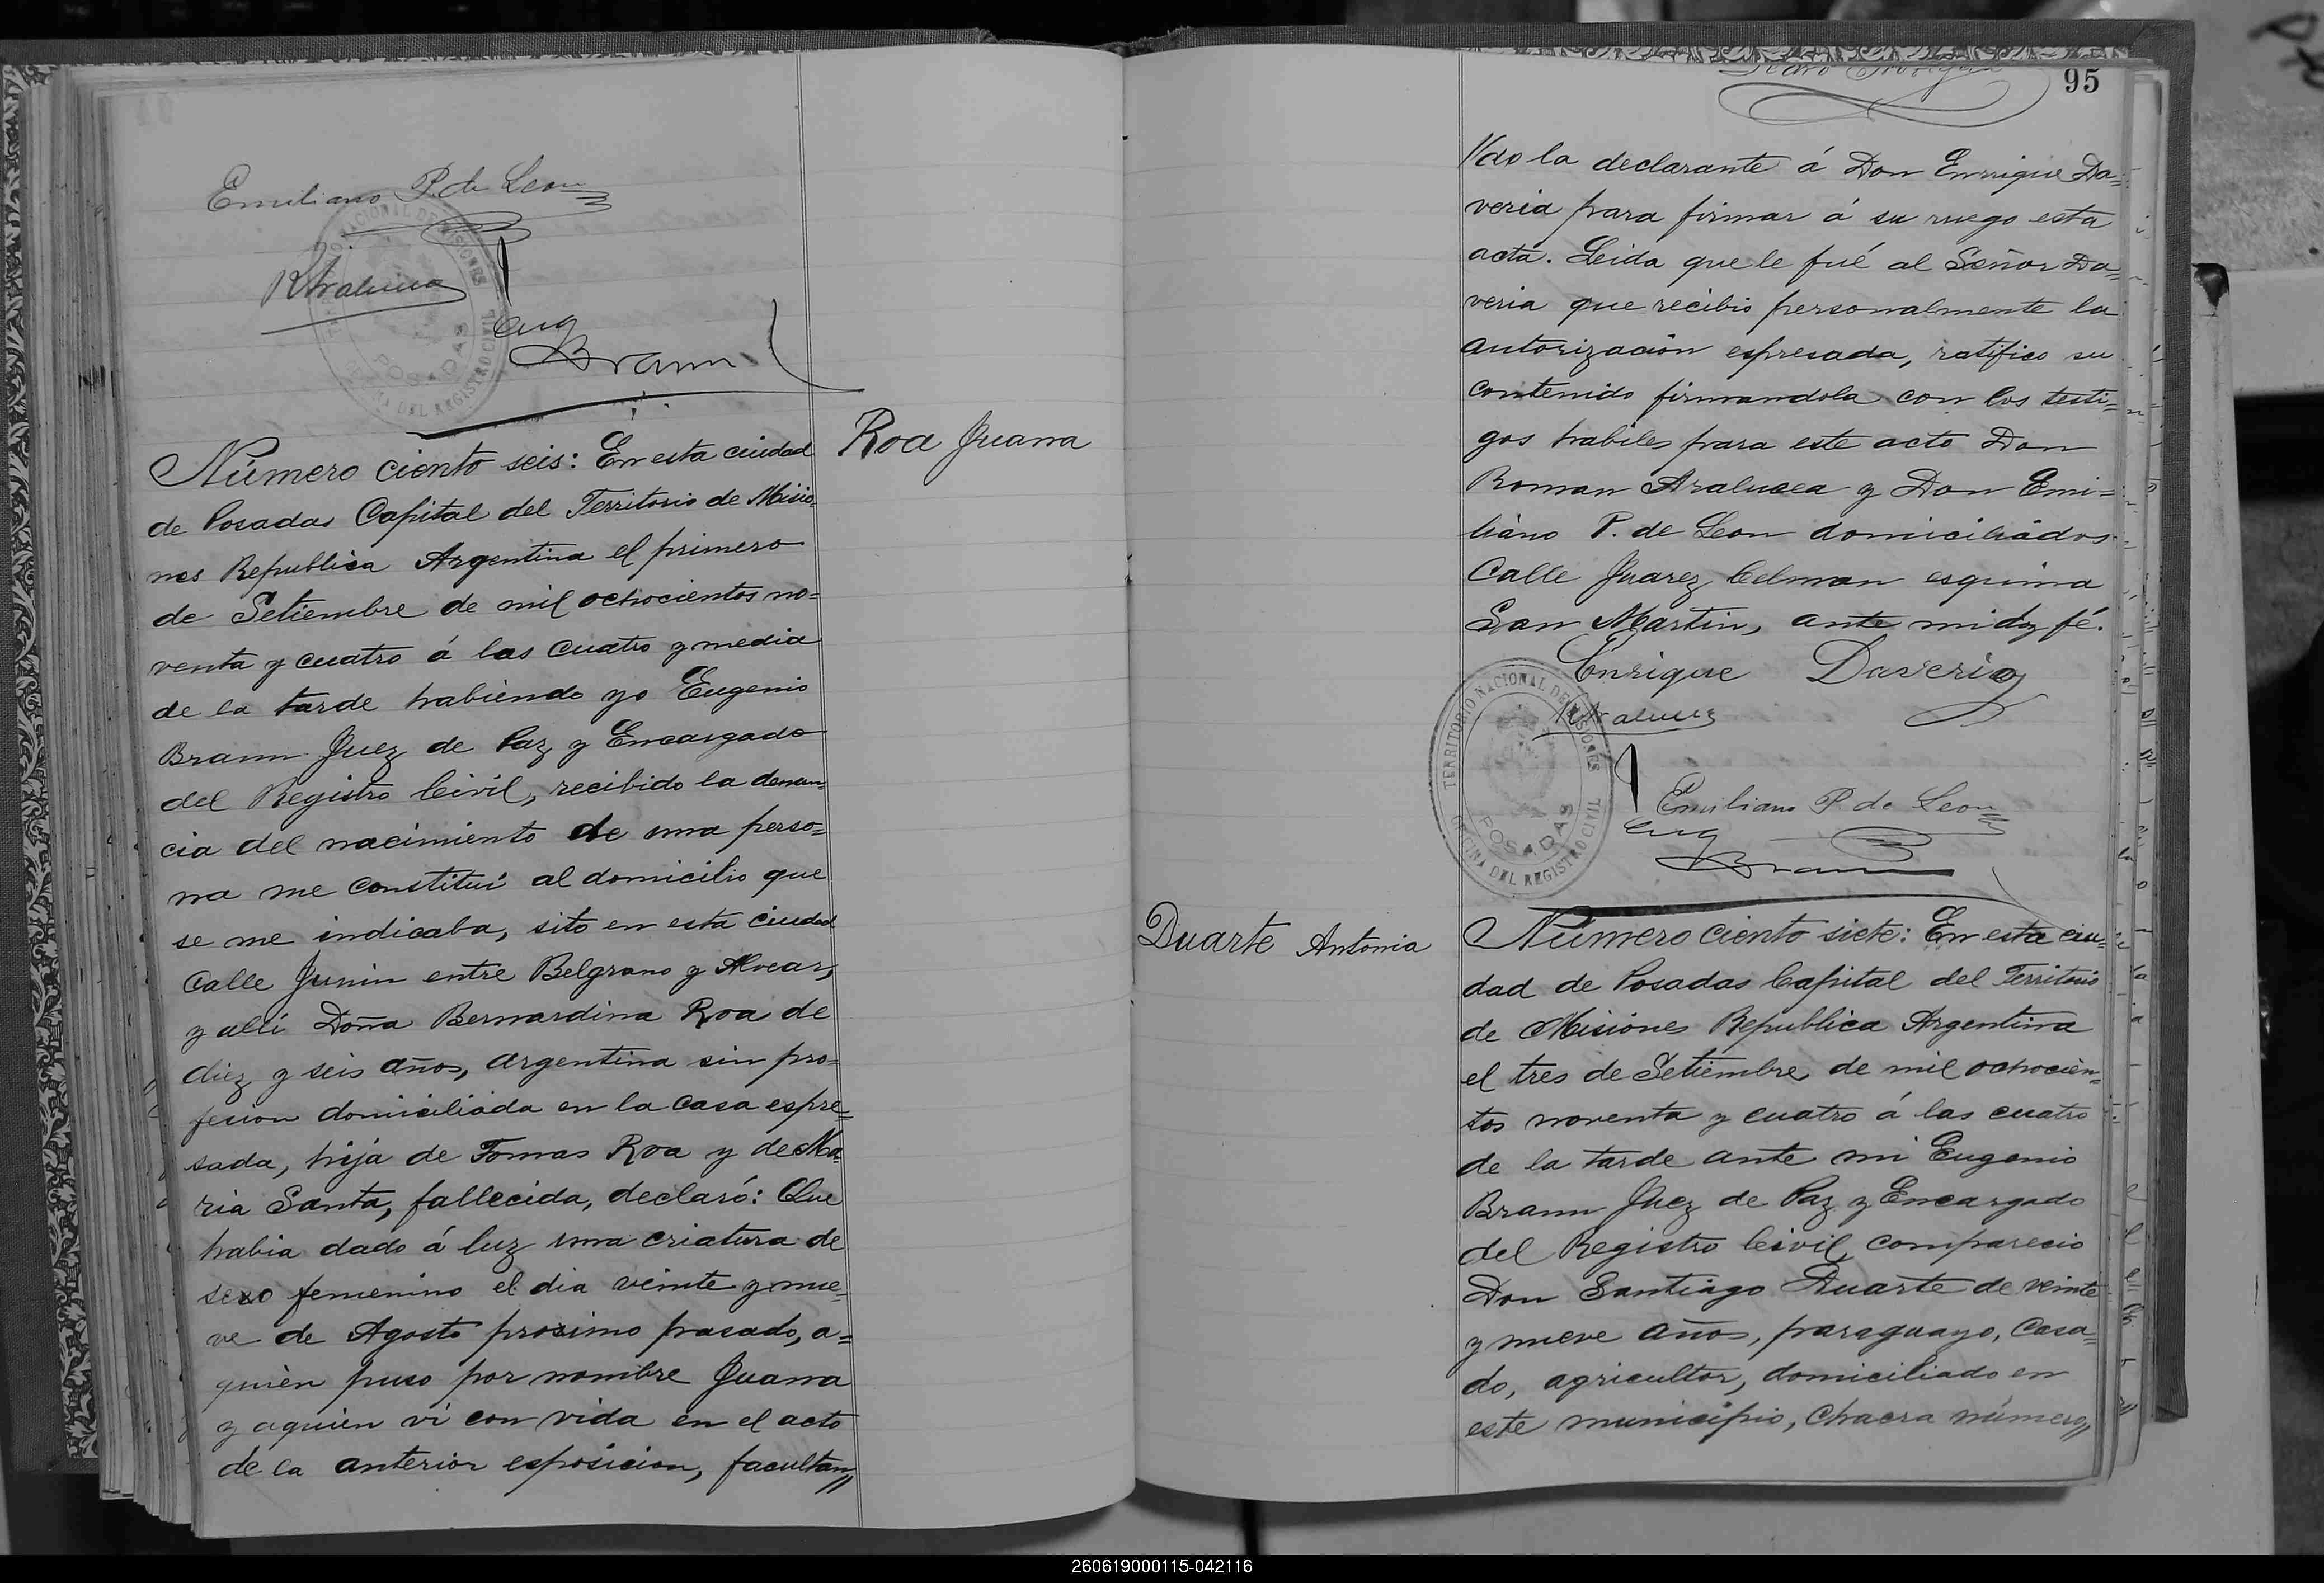 Emiliano P. de Leon
RAraluce
TERRITORIO NACIONAL DE MISIONES
POSADAS
OFICINA DEL REGISTRO CIVIL
Eug
Brann
Roa Juana
Número ciento seis: En esta ciudad
de Posadas Capital del Territorio de Misio-
nes Republica Argentina el primero
de Setiembre de mil ochocientos no=
venta y cuatro á las cuatro y media
de la tarde habiendo yo Eugenio
Brann Juez de Paz y Encargado
del Registro Civil, recibido la denun-
cia del nacimiento de una perso=
na me constitui al domicilio que
se me indicaba, sito en esta ciudad
Calle Junin entre Belgrano y Alvear,
y alli Doña Bernardina Roa de
diez y seis años, argentina sin pro=
fesion domiciliada en la casa espre=
sada, hija de Tomas Roa y de Ma-
ria Santa, fallecida, declaró: Que
habia dado á luz una criatura de
sexo femenino el dia veinte y nue-
ve de Agosto proximo pasado, a=
quien puso por nombre Juana
y aquien vi con vida en el acto
de la anterior esposicion, facultan//
95
//do la declarante á Don Enrrique Da=
veria para firmar á su ruego esta
acta. Leida que le fué al Señor Da=
veria que recibio personalmente la
autorización espresada, ratifico su
contenido firmandola con los testi=
gos habiles para este acto Don
Roman Aralucea y Don Emi=
liano P. de Leon domiciliados
Calle Juarez Celman esquina
San Martin, ante mi doy fé.
Enrique Daveria
RAraluce
TERRITORIO NACIONAL DE MISIONES
POSADAS
OFICINA DEL REGISTRO CIVIL
Emiliano P. de Leon
Eug
Brann
Duarte Antonia
Número ciento siete: En esta ciu-
dad de Posadas Capital del Territorio
de Misiones Republica Argentina
el tres de Setiembre de mil ochocien=
tos noventa y cuatro á las cuatro
de la tarde ante mi Eugenio
Brann Juez de Paz y Encargado
del Registro Civil, comparecio
Don Santiago Duarte de veinte
y nueve años, paraguayo, Casa=
do, agricultor, domiciliado en
este municipio, Chacra número//
260619000115-042116